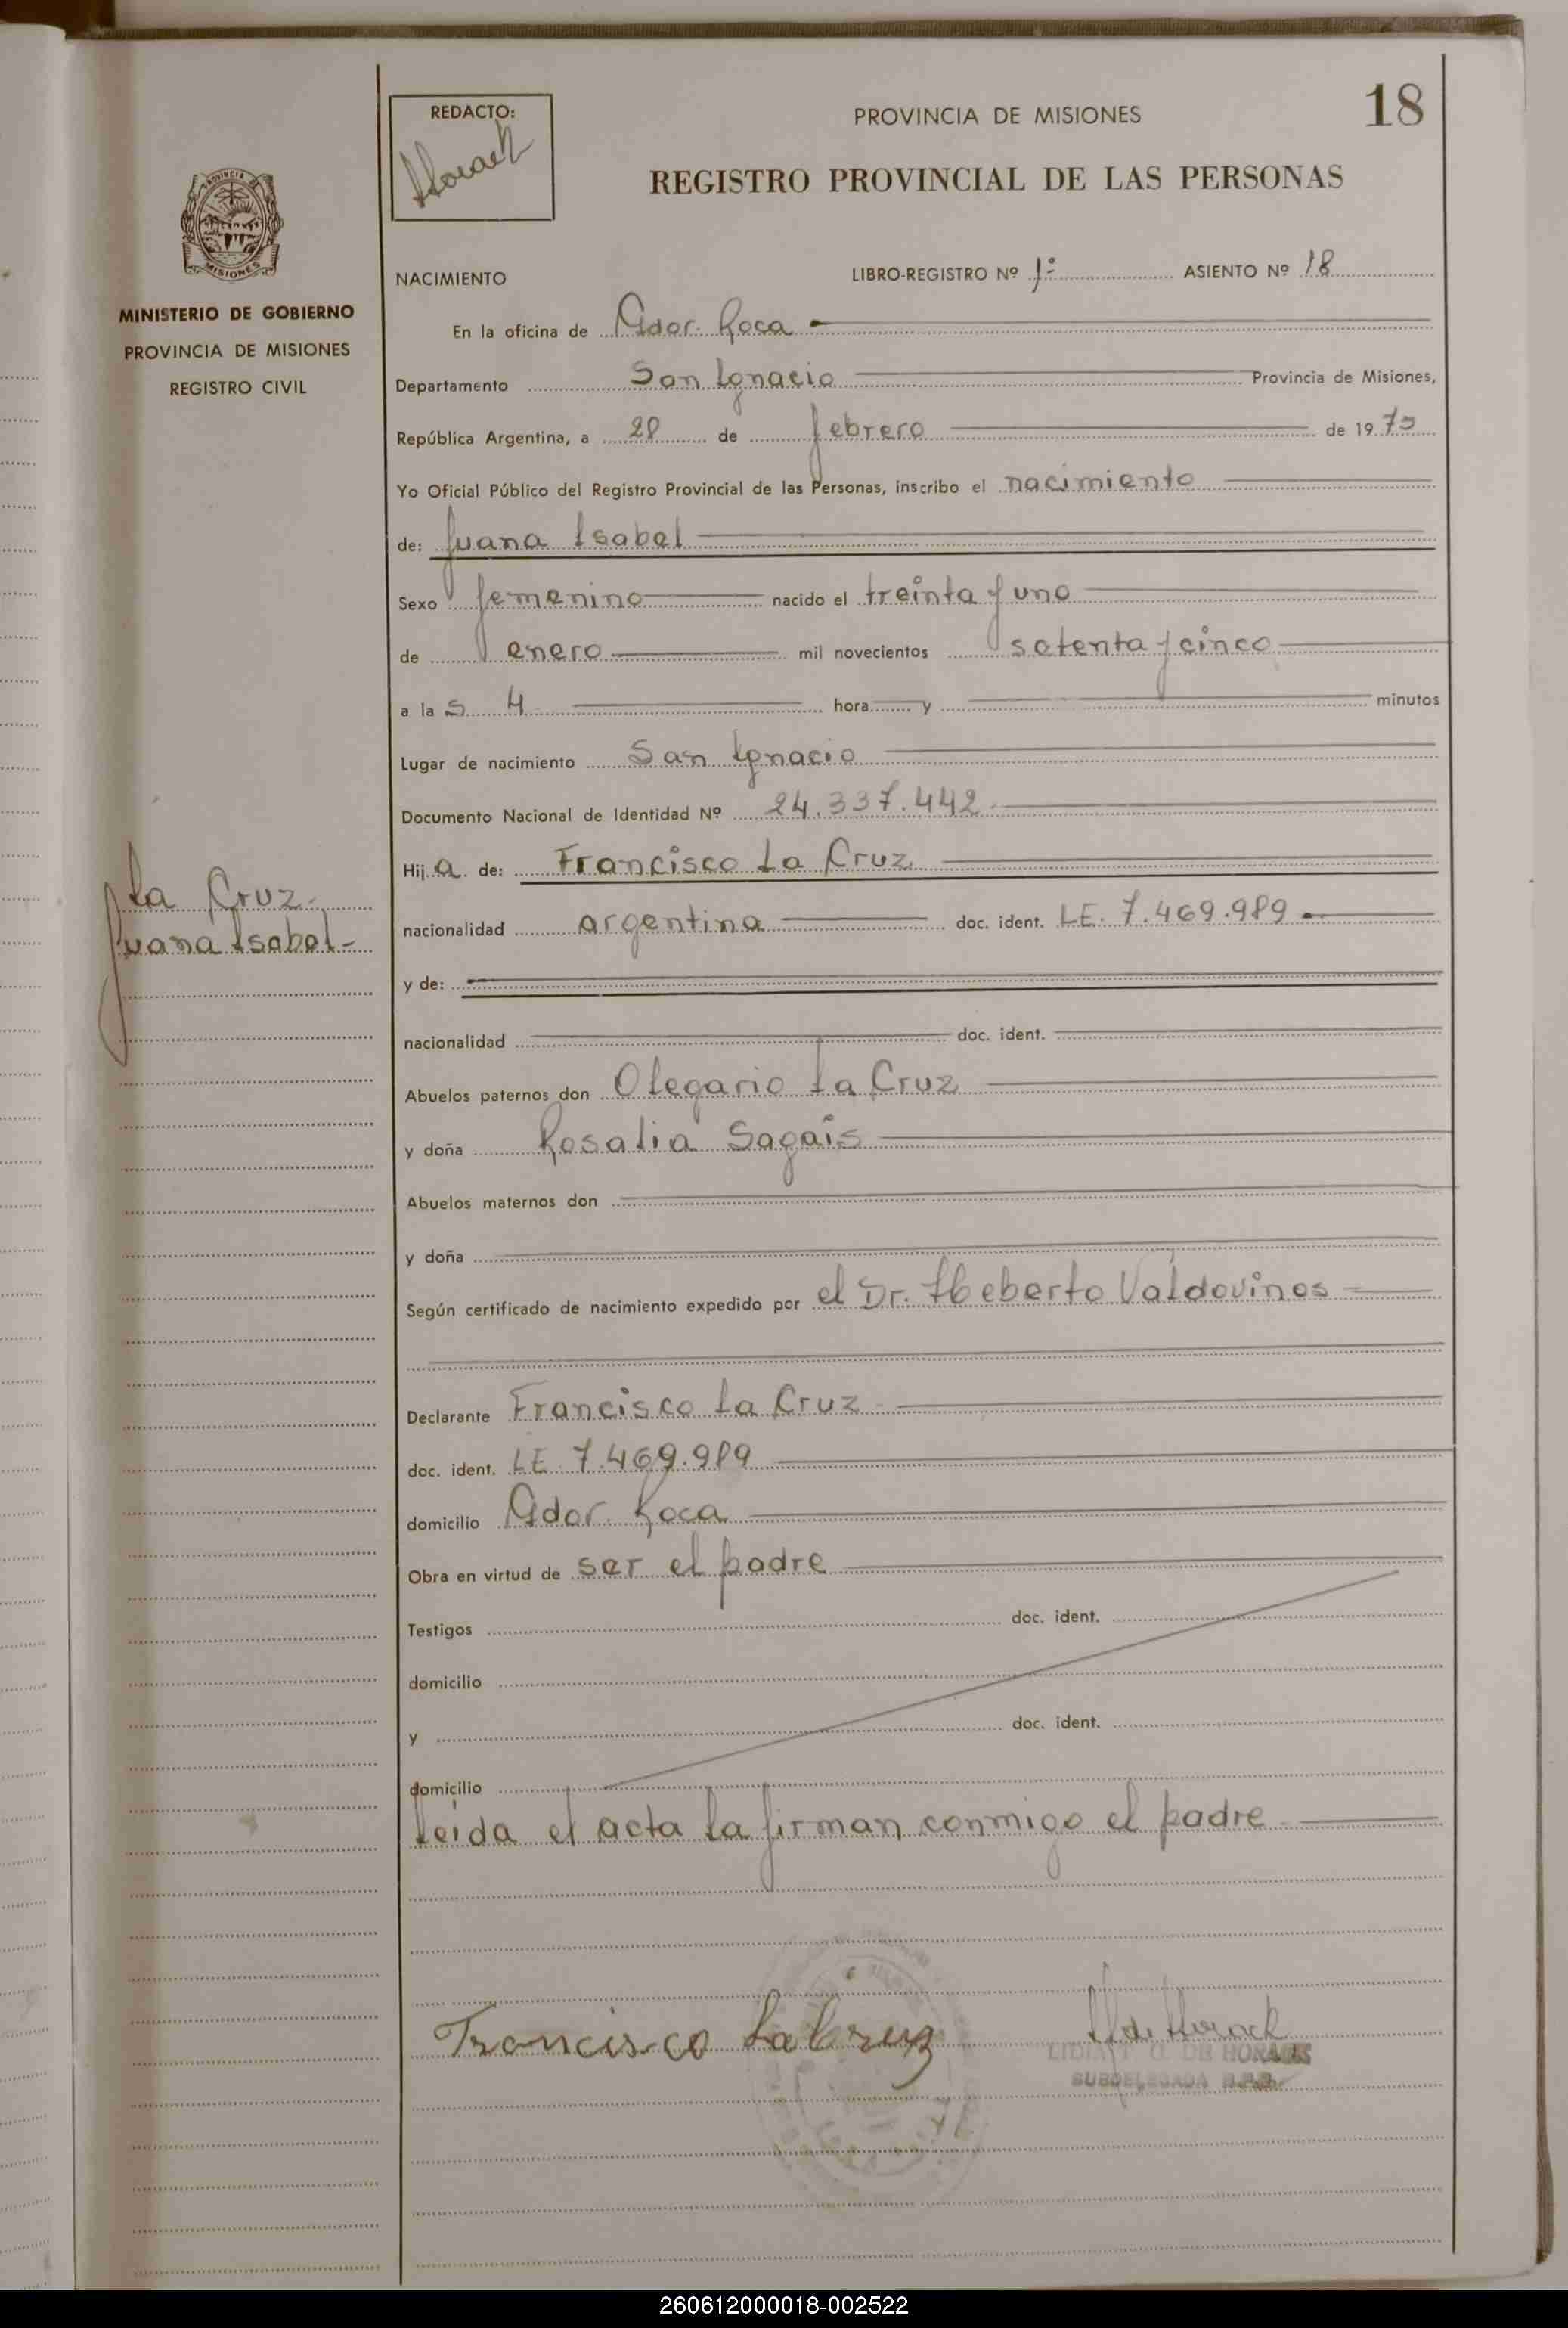 18
REDACTO:
Horack
PROVINCIA DE MISIONES
REGISTRO PROVINCIAL DE LAS PERSONAS
PROVINCIA DE
MISIONES
MINISTERIO DE GOBIERNO
PROVINCIA DE MISIONES
REGISTRO CIVIL
NACIMIENTO LIBRO-REGISTRO Nº 1º ASIENTO Nº 18
En la oficina de Gdor. Roca
Departamento San Ignacio Provincia de Misiones,
República Argentina, a 28 de febrero de 1975
Yo Oficial Público del Registro Provincial de las Personas, inscribo el nacimiento
de: Juana Isabel
Sexo femenino nacido el treinta y uno
de enero mil novecientos setenta y cinco
a las 4 hora y minutos
Lugar de nacimiento San Ignacio
Documento Nacional de Identidad Nº 24.337.442
Hija de: Francisco La Cruz
La Cruz
Juana Isabel-
nacionalidad argentina doc. ident. LE. 7.469.989
y de:
nacionalidad doc. ident.
Abuelos paternos don Olegario La Cruz
y doña Rosalia Sagais
Abuelos maternos don
y doña
Según certificado de nacimiento expedido por el Dr. Heberto Valdovinos
Declarante Francisco La Cruz
doc. ident. LE 7.469.989
domicilio Gdor. Roca
Obra en virtud de ser el padre
Testigos doc. ident.
domicilio
y doc. ident.
domicilio
Leida el acta la firman conmigo el padre
Francisco La Cruz
DE HORACK
SUBDELEGADA R.P.P.
260612000018-002522